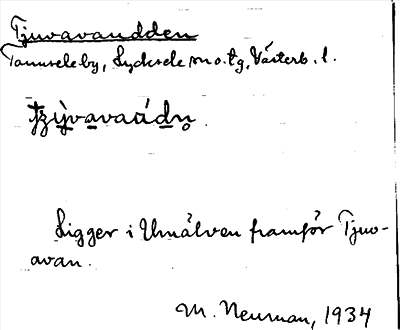 Tjuvavaudden
Tannseleby, Lycksele sn o. tg, Västerb. l.
Ligger i Umälven framför Tjuv-
avan.
M. Neuman, 1934